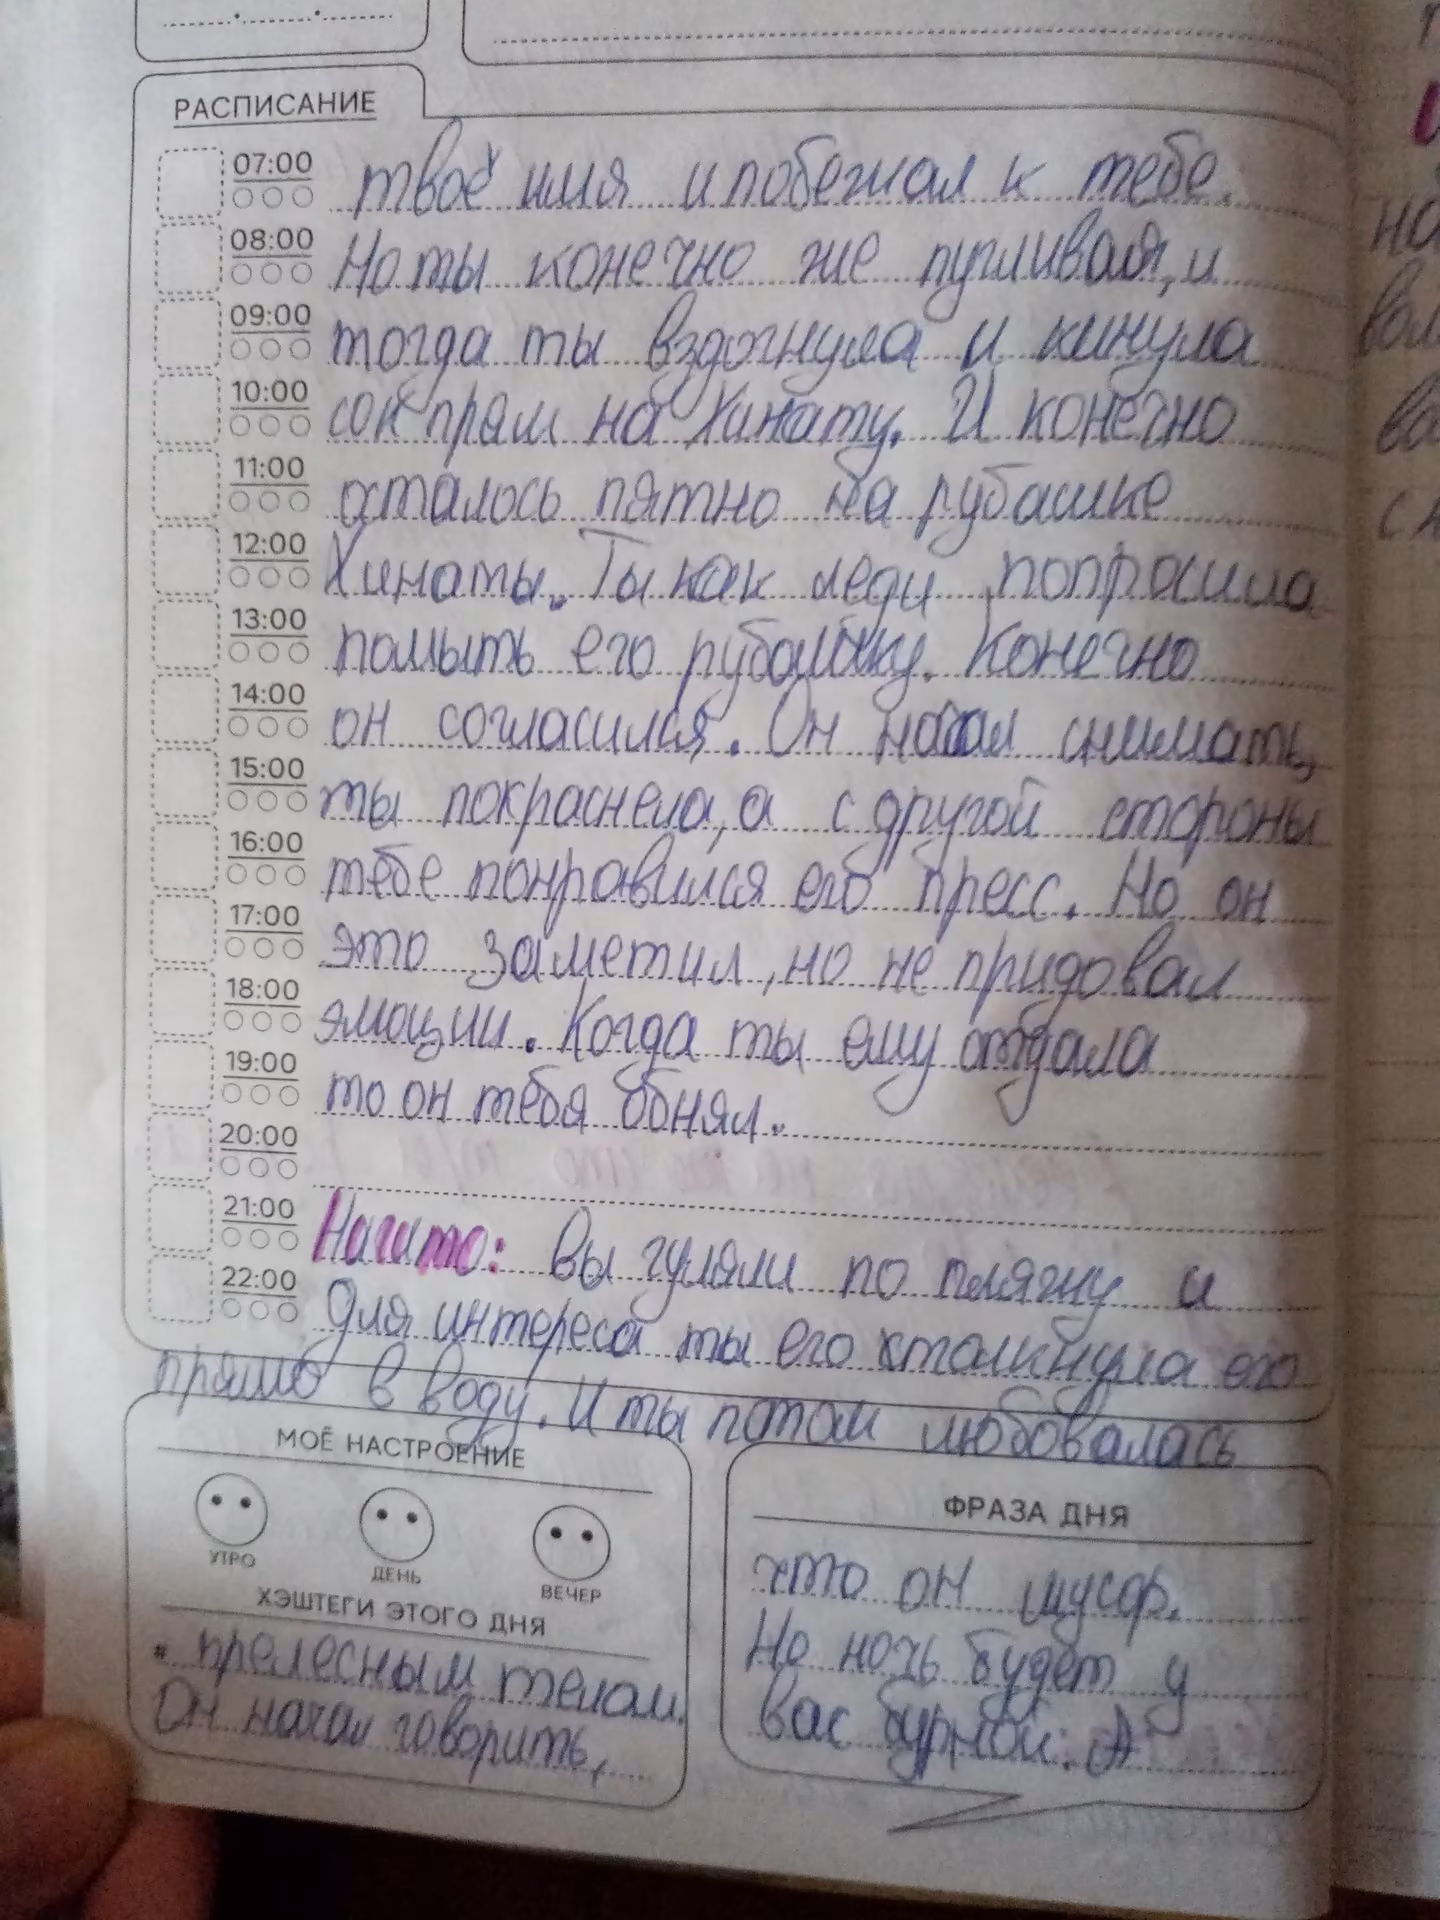 РАСПИСАНИЕ
07:00 твоё имя и побежал к тебе.
08:00 Но ты конечно же пугливая, и
09:00 тогда ты вздогнула и кинула
10:00 сок прям на Хинату. И конечно
11:00 осталось пятно на рубашке
12:00 Хинаты. Ты как леди попросила
13:00 помыть его рубашку. Конечно
14:00 он согласился. Он начал снимать,
15:00 ты покраснела, а с другой стороны
16:00 тебе понравился его пресс. Но он
17:00 это заметил, но не придовал
18:00 эмоции. Когда ты ему отдала
19:00 то он тебя обнял.
20:00
21:00 Нагито: вы гуляли по пляжу и
22:00 для интереса ты его столкнула его
прямо в воду. И ты потом любовалась
МОЁ НАСТРОЕНИЕ
УТРО ДЕНЬ ВЕЧЕР
ХЭШТЕГИ ЭТОГО ДНЯ
# прелесным телом.
Он начал говорить,
ФРАЗА ДНЯ
что он мусор.
Но ночь будет у
вас бурной: